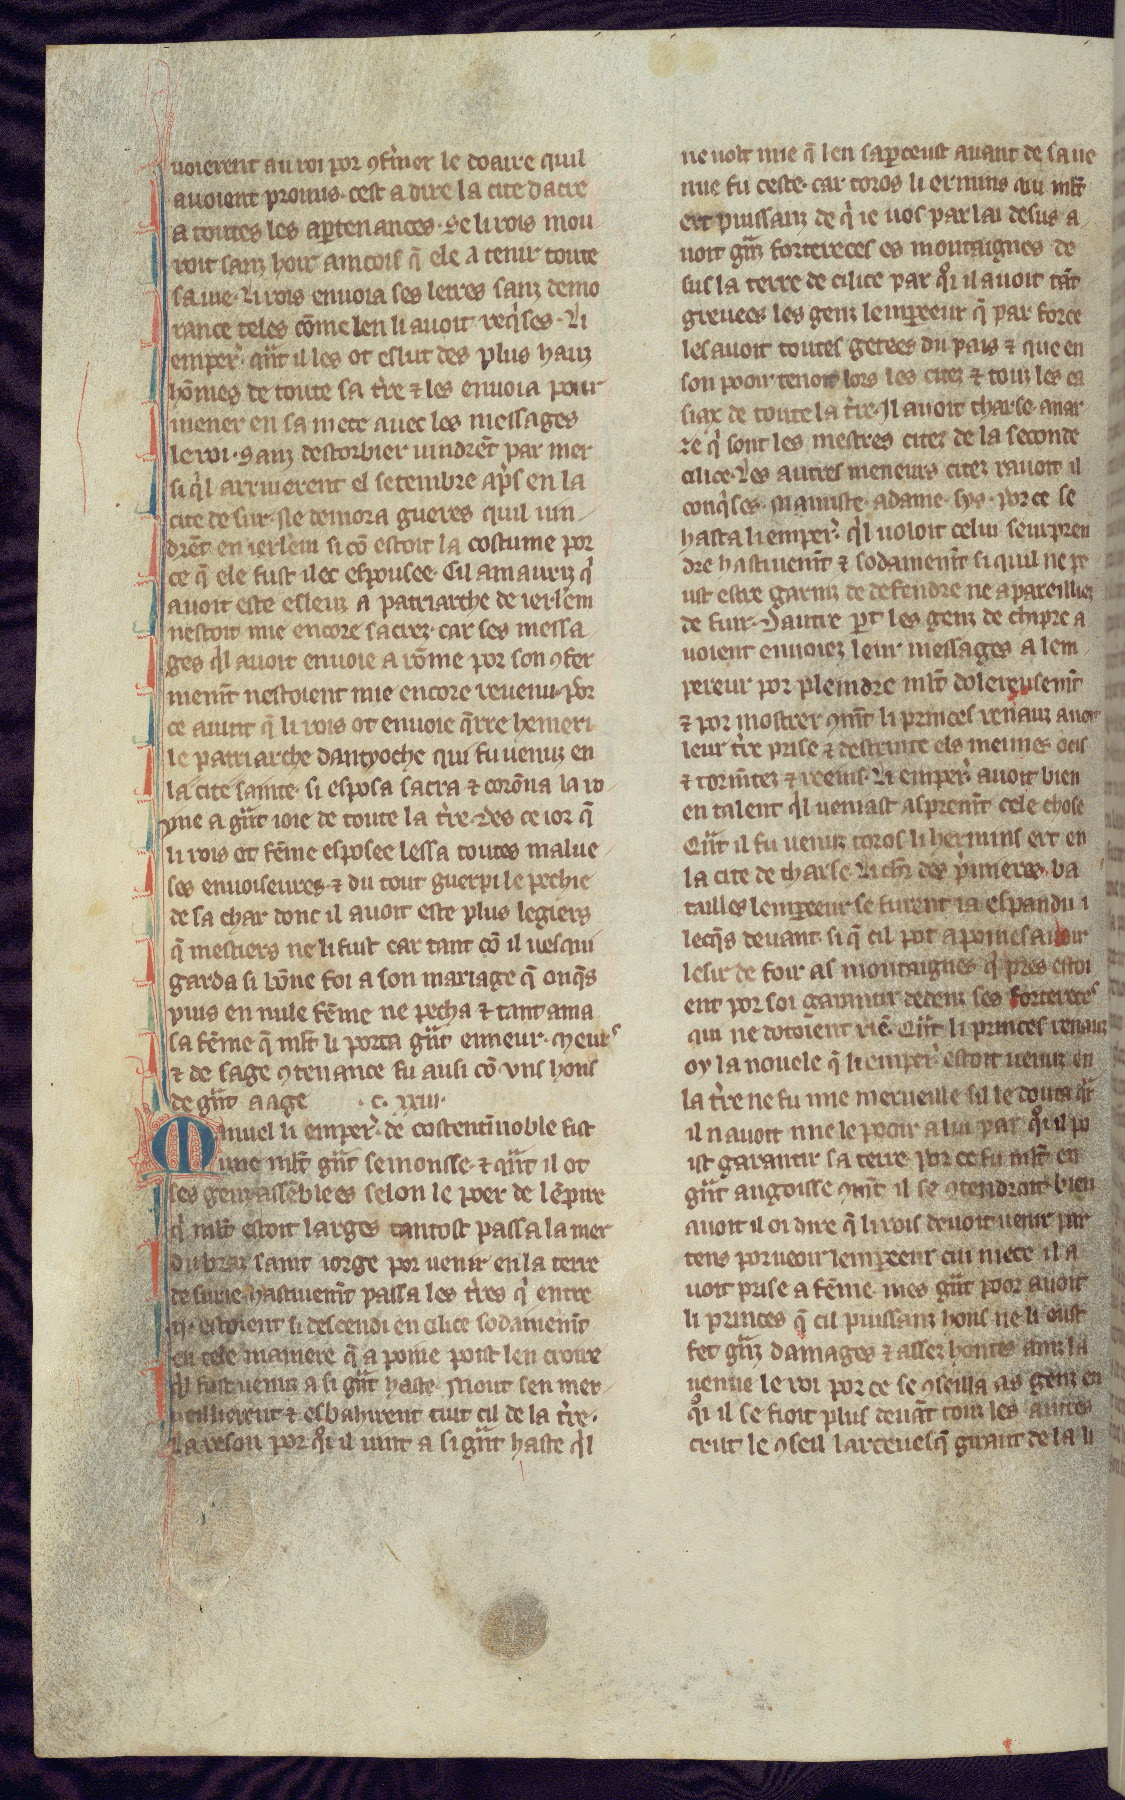 uoierent au roi por ꝯfẜmer le doaire quil
auoient promis· cest a dire la cite dacre
a toutes les aꝑtenances· Se li rois mou
roit sanz hoir aincois q̃ ele a tenir toute
sa uie· Li rois enuoia ses letres sanz demo
rance teles cōme len li auoit req̃ses· Li
emper̃· qñt il les ot eslut des plus hauz
hōmes de toute sa tr̃e ⁊ les enuoia pour
mener en sa niece auec les messages
le roi· Sanz destorbier uindrēt par mer
si qͥl arriuerent el setembre ap̃s en la
cite de sur· Ne demora gueres quil uin
drēt en ierlem si cō estoit la costume por
ce q̃ ele fust ilec espousee· Cil amauriz qͥ
auoit este esleuz a patriarche de ierlem
nestoit mie encore sacrez· car ses messa
ges qͥl auoit enuoie a rōme por son ꝯfer
mem̃t nestoient mie encore reuenu· por
ce auint q̃ li rois ot enuoie q̃rre hemeri
le patriarche dantyoche qui fu uenuz en
la cite sainte· si esposa sacra ⁊ corōna la ro
yne a gñt ioie de toute la tr̃e· Des ce ior q̃
li rois ot fēme esposee lessa toutes malue
ses enuoiseures· ⁊ du tout guerpi le pechie
de sa char dont il auoit este plus legiers
q̃ mestiers ne li fust car tant cō il uesqui
garda si bōne foi a son mariage q̃ onq̃s
puis en nule fēme ne pecha ⁊ tant ama
sa fēme q̃ ml̃t li porta gñt enneur· Meurs
⁊ de sage ꝯtenance fu ausi cō uns hons
de gñt aage ·c· xxiii·
Manuel li emper̃· de costentinoble fist
une ml̃t gñt semonsse· ⁊ qñt il ot
ses genz assēblees selon le poer de lēpire
qͥ ml̃t estoit larges tantost passa la mer
du braz saint iorge por uenir en la terre
de surie· hastiuem̃t passa les tr̃es qͥ entre
ii· estoient si descendi en cilice sodainem̃t
en tele maniere q̃ a poine poist len croire
qͥl fust uenuz a si gñt haste· Mout sen mer
ueillierent ⁊ esbahirent tuit cil de la tr̃e·
La reson por qͦi il uint a si gñt haste qͥl
ne uolt mie q̃ len saꝑceust auant de sa ue
nue fu ceste· car toros li ermins qui ml̃t
ert puissanz de qͥ ie uos parlai desus a
uoit gñz fortereces es montaignes de
sus la terre de cilice par qͦi il auoit tāt
greuees les genz lemꝑeeur q̃ par force
les auoit toutes getees du pais ⁊ que en
son pooir tenoit lors les citez ⁊ touz les ca
siax de toute la tr̃e· Il auoit tharse· anar
ze qͥ sont les mestres citez de la seconde
cilice· Les autres meneurs citez rauoit il
conq̃ses· mamiste· adame· sys· por ce se
hasta li emper̃· qͥl uoloit celui seurpren
dre hastiuem̃t ⁊ sodainem̃t si quil ne pe
ust estre garniz de defendre ne apareilliez
de fuir· Dautre ꝑt les genz de chipre a
uoient enuoiez leur messages a lem
pereur por pleindre ml̃t dolereusem̃t
⁊ por mostrer ꝯmt̃ li princes renauz auoit
leur tr̃e prise ⁊ destruite els meimes ocis
⁊ tormētez ⁊ reens· Li emper̃ auoit bien
en talent qͥl ueniast asprem̃t cele chose
Qñt il fu uenuz toros li hermins ert en
la cite de tharse· Li chr̃ des pͥmeres ba
tailles lemꝑeeur se furent ia espandu i
lecq̃s deuant· si q̃ cil pot a poines auoir
lesir de foir as montaignes qͥ pres estoi
ent por soi garantir dedenz ses forteretes
qui ne dotoient riē· Qñt li princes renauz
oy la nouele q̃ li emper̃ estoit uenuz en
la tr̃e ne fu mie merueille sil le douta qr̃
il nauoit mie le pooir a lui par qͦi il po
ist garantir sa terre· por ce fu ml̃t en
gñt angoisse ꝯmt̃ il se ꝯtendroit· bien
auoit il oi dire q̃ li rois deuoit uenir par
tens por ueoir lemꝑeeur cui niece il a
uoit prise a fēme· mes gñt poor auoit
li princes q̃ cil puissanz hons ne li eust
fet gñz damages ⁊ assez hontes ainz la
uenue le roi por ce se ꝯseilla as genz en
qͦi il se fioit plus deuāt touz les autres
crut le ꝯseil larceuesq̃ giraut de la li